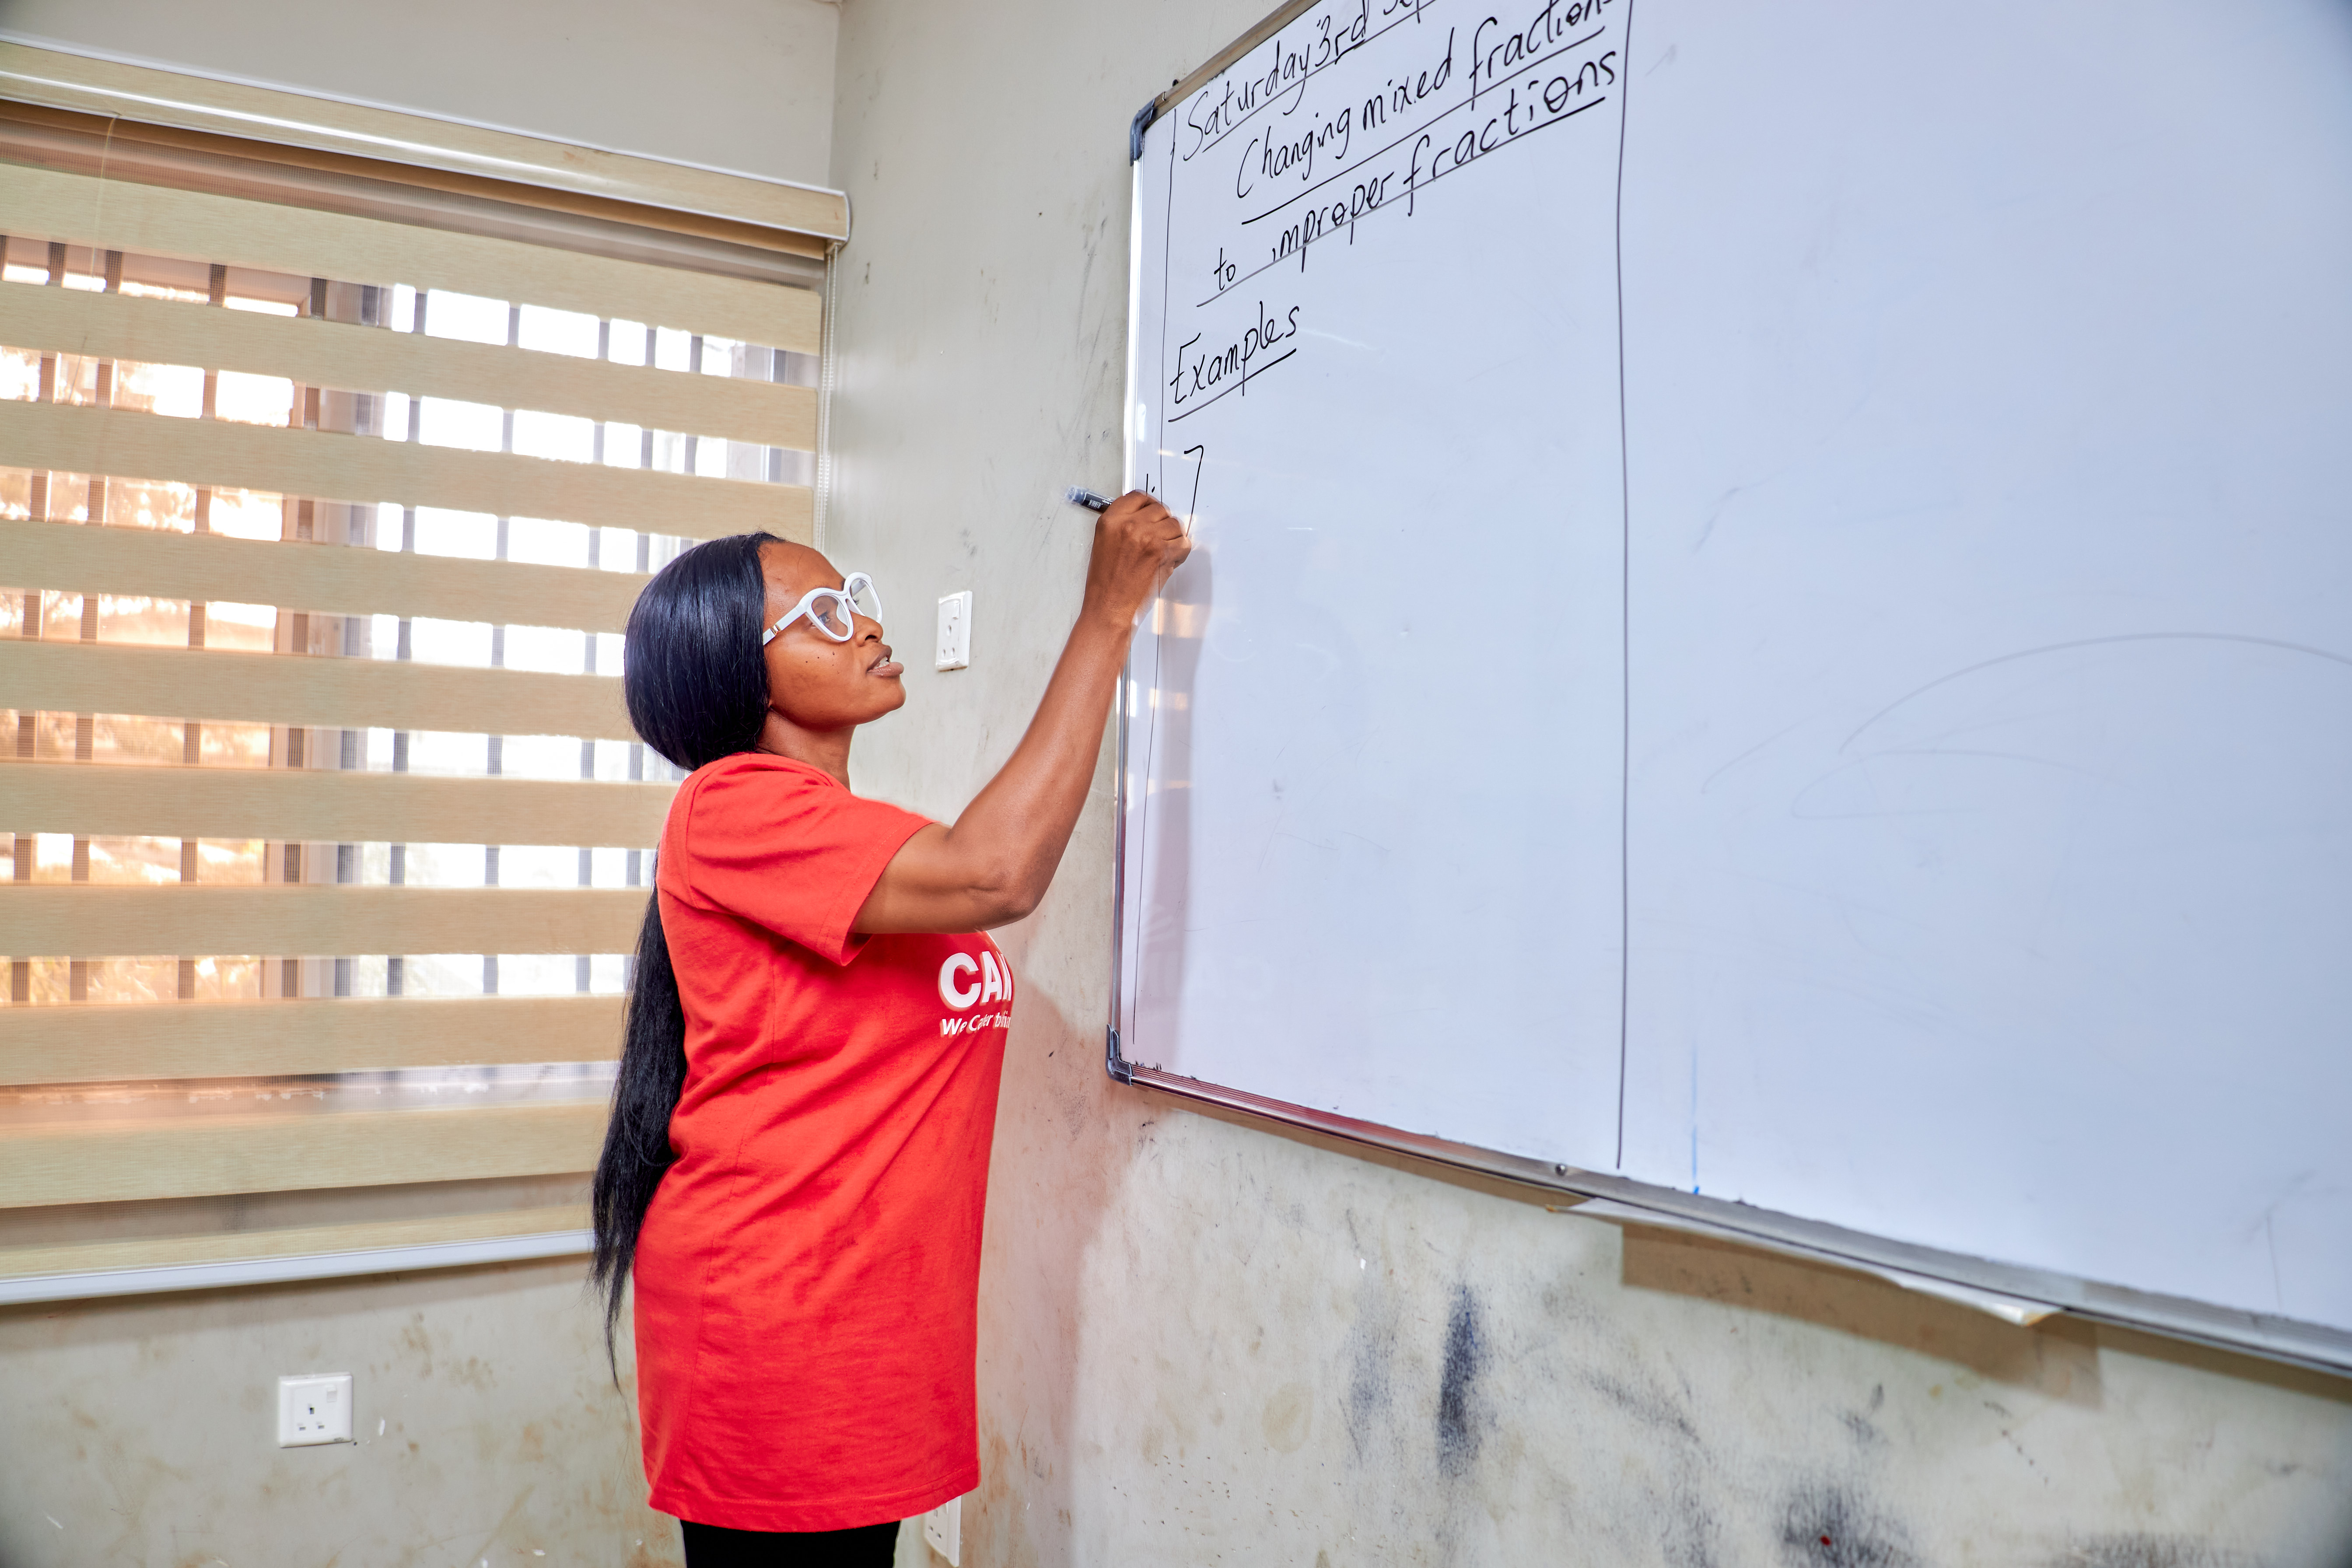 Saturday 3rd
Changing mixed fractions
to improper fractions
Examples
7
We